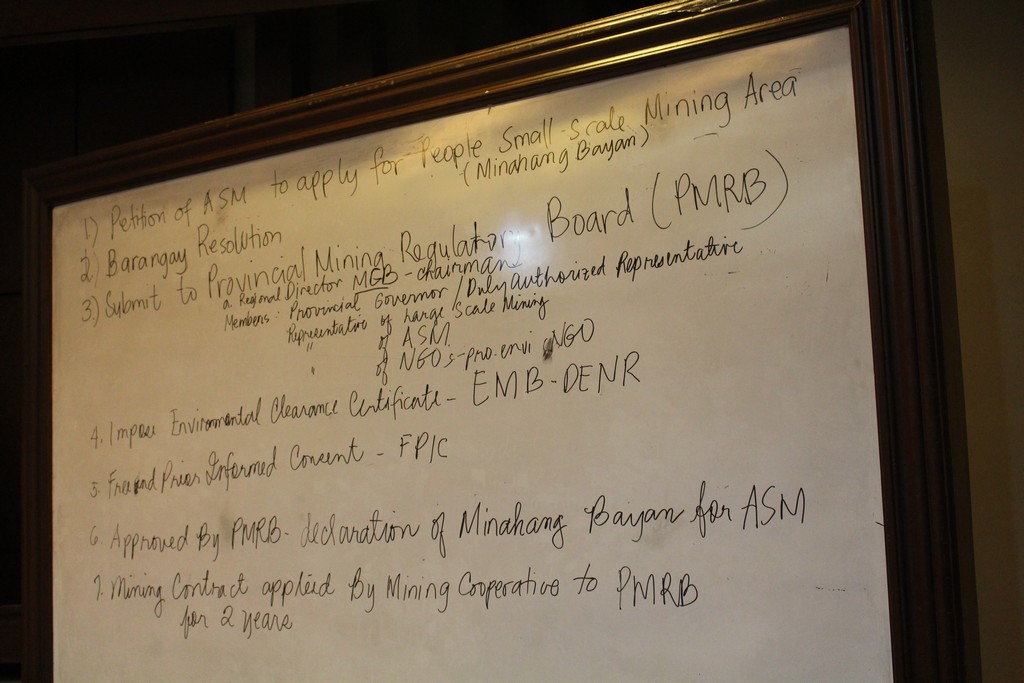 1) Petition of ASM to apply for People Small-Scale Mining Area
(Minahang Bayan)
2) Barangay Resolution
3) Submit to Provincial Mining Regulatory Board (PMRB)
a. Regional Director MGB - chairman
Members: Provincial Governor / Duly Authorized Representative
Representative of Large Scale Mining
" of ASM
of NGOs-pro.envi NGO
4. Impose Environmental Clearance Certificate - EMB-DENR
5. Free and Prior Informed Consent - FPIC
6. Approved By PMRB- declaration of Minahang Bayan for ASM
7. Mining Contract applied By Mining Cooperative to PMRB
for 2 years